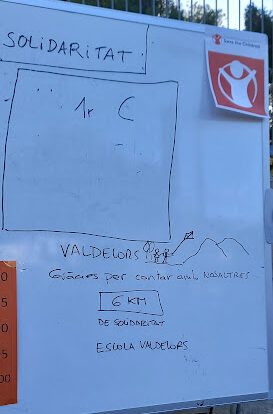 SOLiDARiTAT
Save the Children
1r C
VALDELORS
Gràcies per contar amb NOSALTRES
6 KM
DE SOLIDARITAT
ESCOLA VALDELORS
0
5
0
5
00